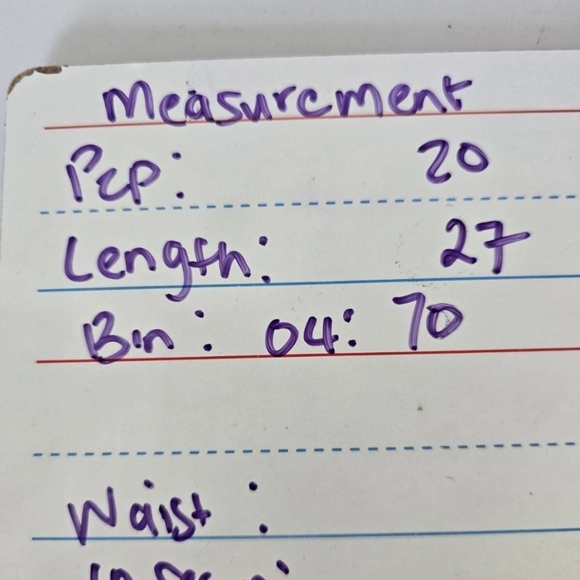 Measurement
Pcp: 20
Length: 27
Bin: 04: 70
Waist: